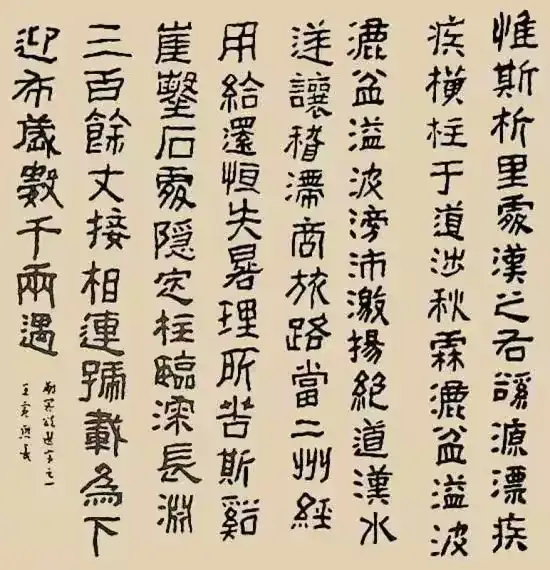 惟斯析里處漢之右谿源漂疾
疾橫柱于道涉秋霖漉盆溢波
漉盆溢波滂沛激揚絕道漢水
逆讓稽滯商旅路當二州經
用給還恒失晷理所苦斯谿
崖鑿石處隱定柱臨深長淵
三百餘丈接相連號載為下
迎布歲數千兩遇
郙閣頌選字之一